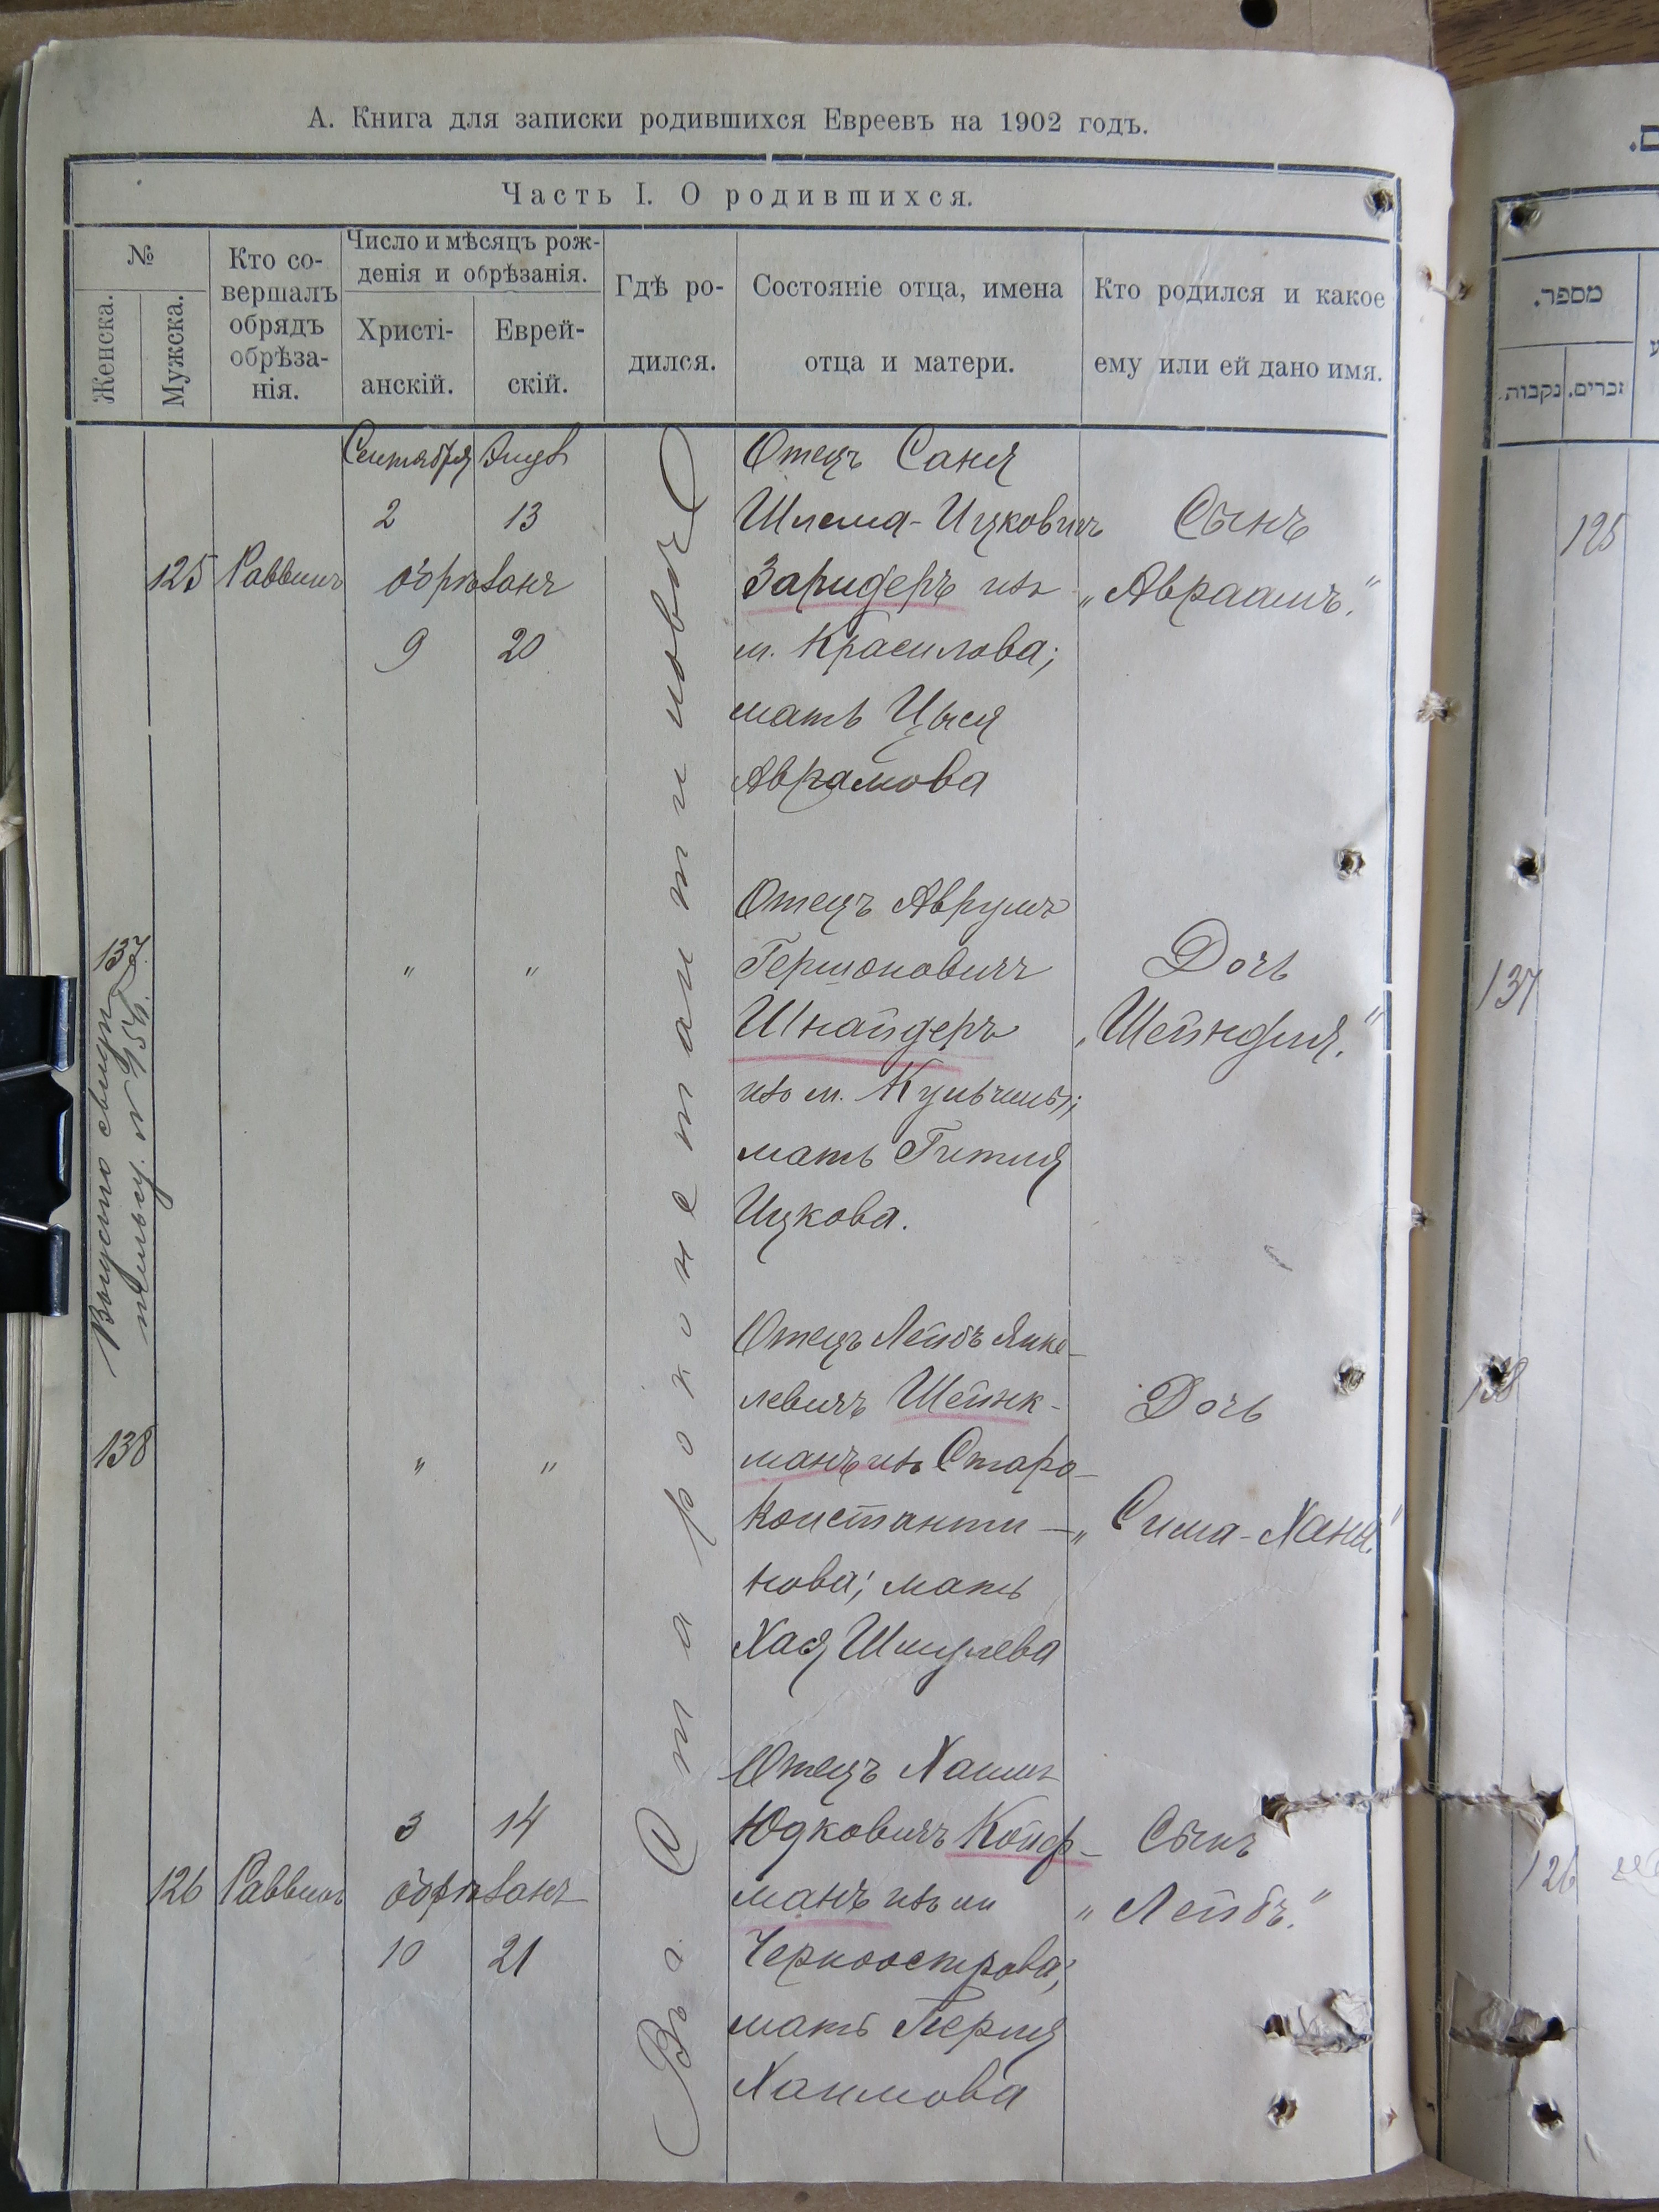 А. Книга для записки родившихся Евреевъ на 1902 годъ.
Часть I. О родившихся.
№
Женска.
Мужска.
Кто со-
вершалъ
обрядъ
обрѣза-
нія.
Число и мѣсяцъ рож-
денія и обрѣзанія.
Христі-
анскій.
Еврей-
скій.
Гдѣ ро-
дился.
Состояніе отца, имена
отца и матери.
Кто родился и какое
ему или ей дано имя.
Въ г. Староконстантиновѣ
Сентября Элувъ
2 13
125 Раввинъ обрѣзанъ
9 20
Отецъ Саня
Шлема-Ицковичъ
Заридеръ изъ
м. Красилова;
мать Цыся
Аврамова
Сынъ
„Авраамъ."
137
Выдано свидѣ
тельсу. №956.
" "
Отецъ Аврумъ
Гершоновичъ
Шнайдеръ
изъ м. Кульчины;
мать Гитля
Ицкова.
Дочь
„Шейндля."
138
" "
Отецъ Лейбъ Янке-
левичъ Шейнк-
манъ изъ Старо-
константи-
нова; мать
Хая Шмулева
Дочь
„Сима-Хана."
3 14
126 Раввинъ обрѣзанъ
10 21
Отецъ Хаимъ
Юдковичъ Койф-
манъ изъ м
Черноострова;
мать Перля
Хаимова
Сынъ
„Лейбъ."
מספר.
נקבות.
זכרים.
125
137
138
126